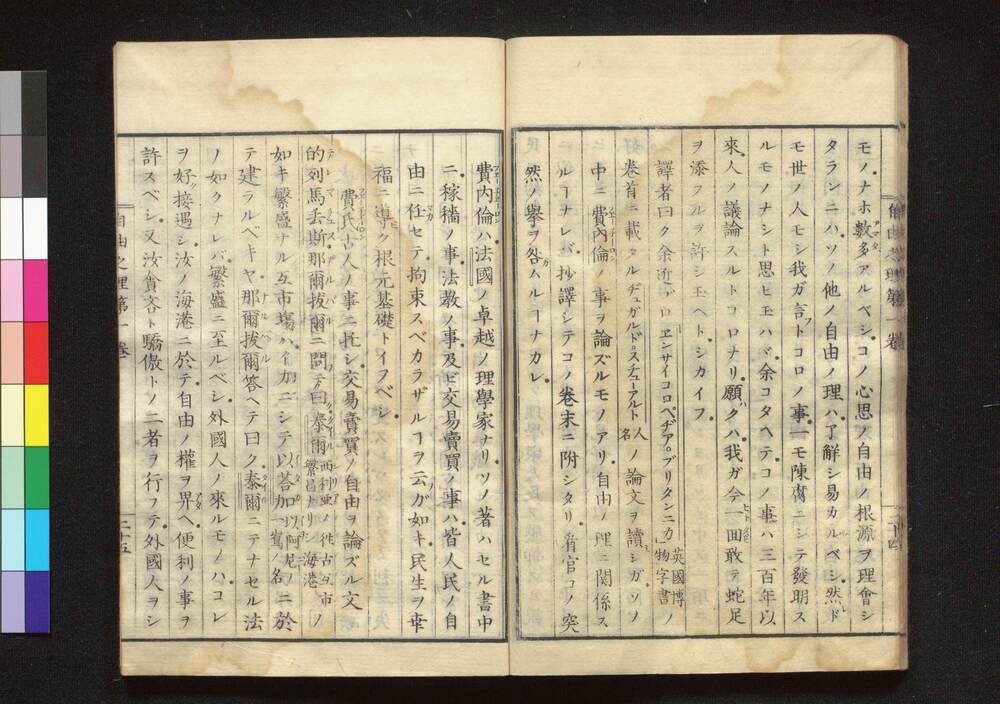 モノ、ナホ數多アルベシ。コノ心思ノ自由ノ根源ヲ理會シ
タランニハ、ソノ他ノ自由ノ理ハ了解シ易カルベシ。然ド
モ世ノ人モシ我ガ言トコロノ事一モ陳腐ニシテ發明ス
ルモノナシト思ヒ玉ハヾ、余コタヘテコノ事ハ三百年以
來、人ノ議論スルトコロナリ。願クハ我ガ今一面敢テ蛇足
ヲ添フルヲ許シ玉ヘト、シカイフ。
譯者曰ク余近ゴロヱンサイコロペヂア。ブリタンニカ 英國博物字書ノ
卷首ニ載タルヂュガルド。スチューアルト 人名ノ論文ヲ讀シガ、ソノ
中ニ費內倫ノ事ヲ論ズルモノアリ。自由ノ理ニ關係ス
ルヿナレバ、抄譯シテコノ卷末ニ附シタリ。看官コノ突
然ノ擧ヲ咎ムルヿナカレ。
費內倫ハ法國ノ卓越ノ理學家ナリ。ソノ著ハセル書中
ニ、稼穡ノ事、法教ノ事、及ビ交易賣買ノ事ハ、皆人民ノ自
由ニ任セテ、拘束スベカラザルヿヲ云ガ如キ、民生ヲ幸
福ニ導ク根元基礎トイフベシ。
費氏古人ノ事ニ托シ、交易賣買ノ自由ヲ論ズル文
的列馬丢斯那爾拔爾ニ問テ曰、泰爾 西利亞ノ往古互市繁昌ナリシ海港ノ
如キ繁盛ナル互市場ハ、イカニシテ以荅加 以阿尼ノ一嶌ノ名ニ於
テ建ラルベキヤ。那爾拔爾答ヘテ曰ク泰爾ニテナセル法
ノ如クナレバ、繁盛ニ至ルベシ。外國人ノ來ルモノハ、コレ
ヲ好接遇シ、汝ノ海港ニ於テ、自由ノ權ヲ畀ヘ、便利ノ事ヲ
許スベシ。又汝貪吝ト驕傲トノ二者ヲ行フテ、外國人ヲシ
自由之理第一卷
二十五